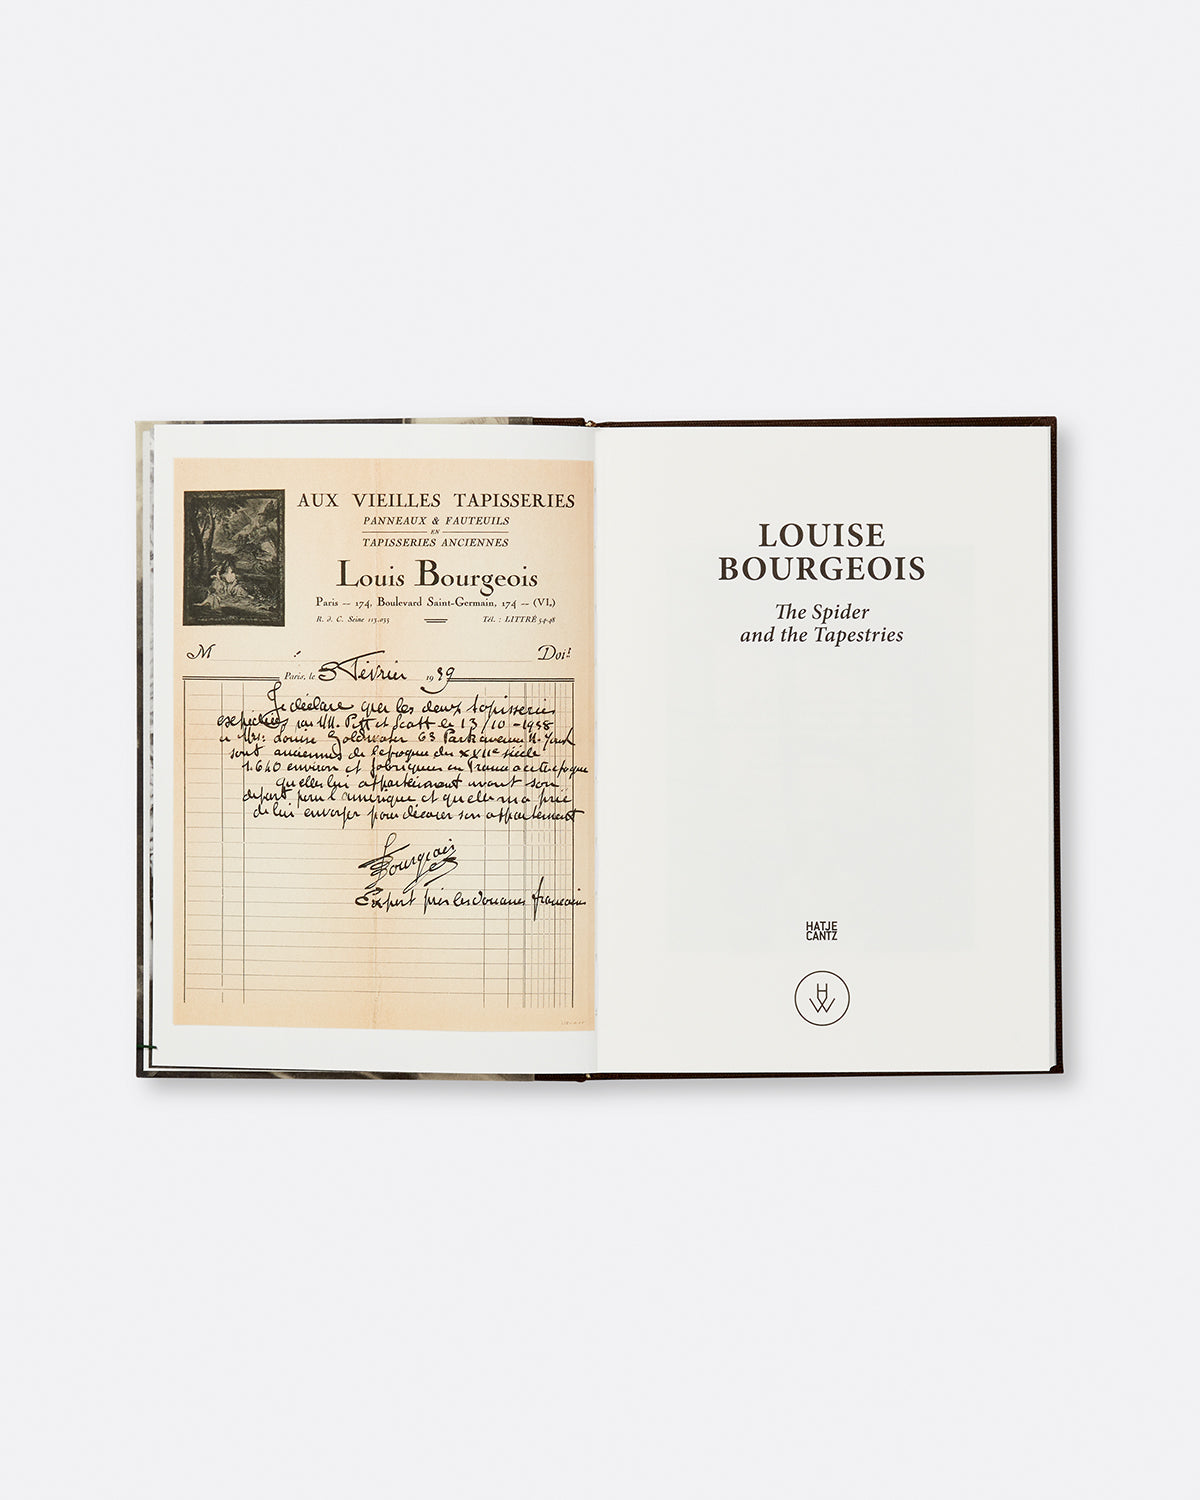 AUX VIEILLES TAPISSERIES
PANNEAUX & FAUTEUILS
EN
TAPISSERIES ANCIENNES
Louis Bourgeois
Paris -- 174, Boulevard Saint-Germain, 174 -- (VI.)
R. d. C. Seine 115.055 Tél. : LITTRÉ 54-48
M Doit
Paris, le 3 Février 1939
Je déclare que les deux tapisseries
expédiées par MM. Pitt et Scott le 13/10 -1938
a Mrs: Louise Goldwater 63 Park avenue N-York
sont anciennes de l'époque du XVIIe siècle
1.640 environ et fabriquées en France a cette époque
quelles lui appartenaient avant son
départ pour l'amérique et quelle m'a prié
de lui envoyer pour décorer son appartement
LBourgeois
Expert près les douanes françaises
LOUISE
BOURGEOIS
The Spider
and the Tapestries
HATJE
CANTZ
HW